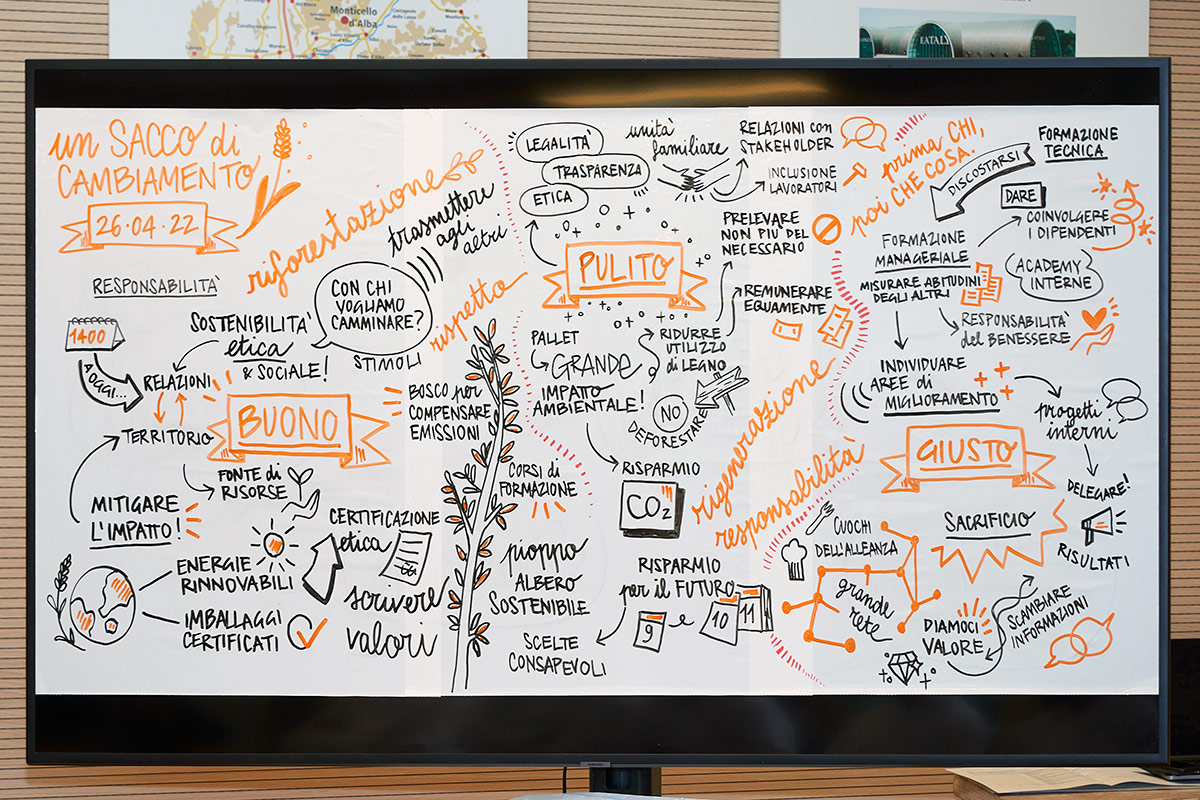 Monticello
d'Alba
EATALY
un SACCO di
CAMBIAMENTO
26.04.22
RESPONSABILITÀ
1400
A OGGI...
RELAZIONI
TERRITORIO
SOSTENIBILITA'
etica
& SOCIALE!
BUONO
FONTE di
RISORSE
MITIGARE
L'IMPATTO!
ENERGIE
RINNOVABILI
IMBALLAGGI
CERTIFICATI
CERTIFICAZIONE
etica
scrivere
valori
riforestazione
trasmettere
agli
altri
CON CHI
VOGLIAMO
CAMMINARE?
STIMOLI
rispetto
BOSCO per
COMPENSARE
EMISSIONI
LEGALITA'
TRASPARENZA
ETICA
unità
familiare
RELAZIONI con
STAKEHOLDER
INCLUSIONE
LAVORATORI
PULITO
PRELEVARE
NON PIU' DEL
NECESSARIO
REMUNERARE
EQUAMENTE
PALLET
GRANDE
IMPATTO
AMBIENTALE!
RIDURRE
UTILIZZO
di LEGNO
NO
DEFORESTARE
RISPARMIO
CO2
CORSI di
FORMAZIONE
pioppo
ALBERO
SOSTENIBILE
RISPARMIO
per il FUTURO
9 e 10 11
SCELTE
CONSAPEVOLI
rigenerazione
responsabilità
prima CHI,
poi CHE COSA.
FORMAZIONE
TECNICA
DISCOSTARSI
DARE
COINVOLGERE
I DIPENDENTI
FORMAZIONE
MANAGERIALE
ACADEMY
INTERNE
MISURARE ABITUDINI
DEGLI ALTRI
RESPONSABILITÀ
del BENESSERE
INDIVIDUARE
AREE di
MIGLIORAMENTO
progetti
interni
GIUSTO
DELEGARE!
RISULTATI
SACRIFICIO
CUOCHI
DELL'ALLEANZA
grande
rete
DIAMOCI
VALORE
SCAMBIARE
INFORMAZIONI
SAMSUNG